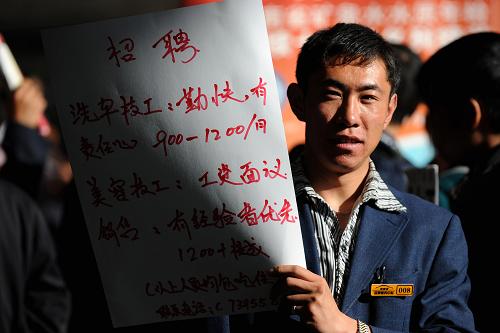 招聘
洗车技工：勤快，有
责任心 900-1200/月
美容技工：工资面议
销售：有经验者优先
1200+提成
(以上人员均包吃住
联系电话：
008